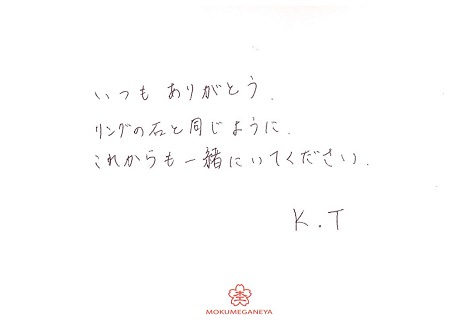 いつも ありがとう.
リングの石と同じように.
これからも一緒にいてください.
K.T
MOKUMEGANEYA